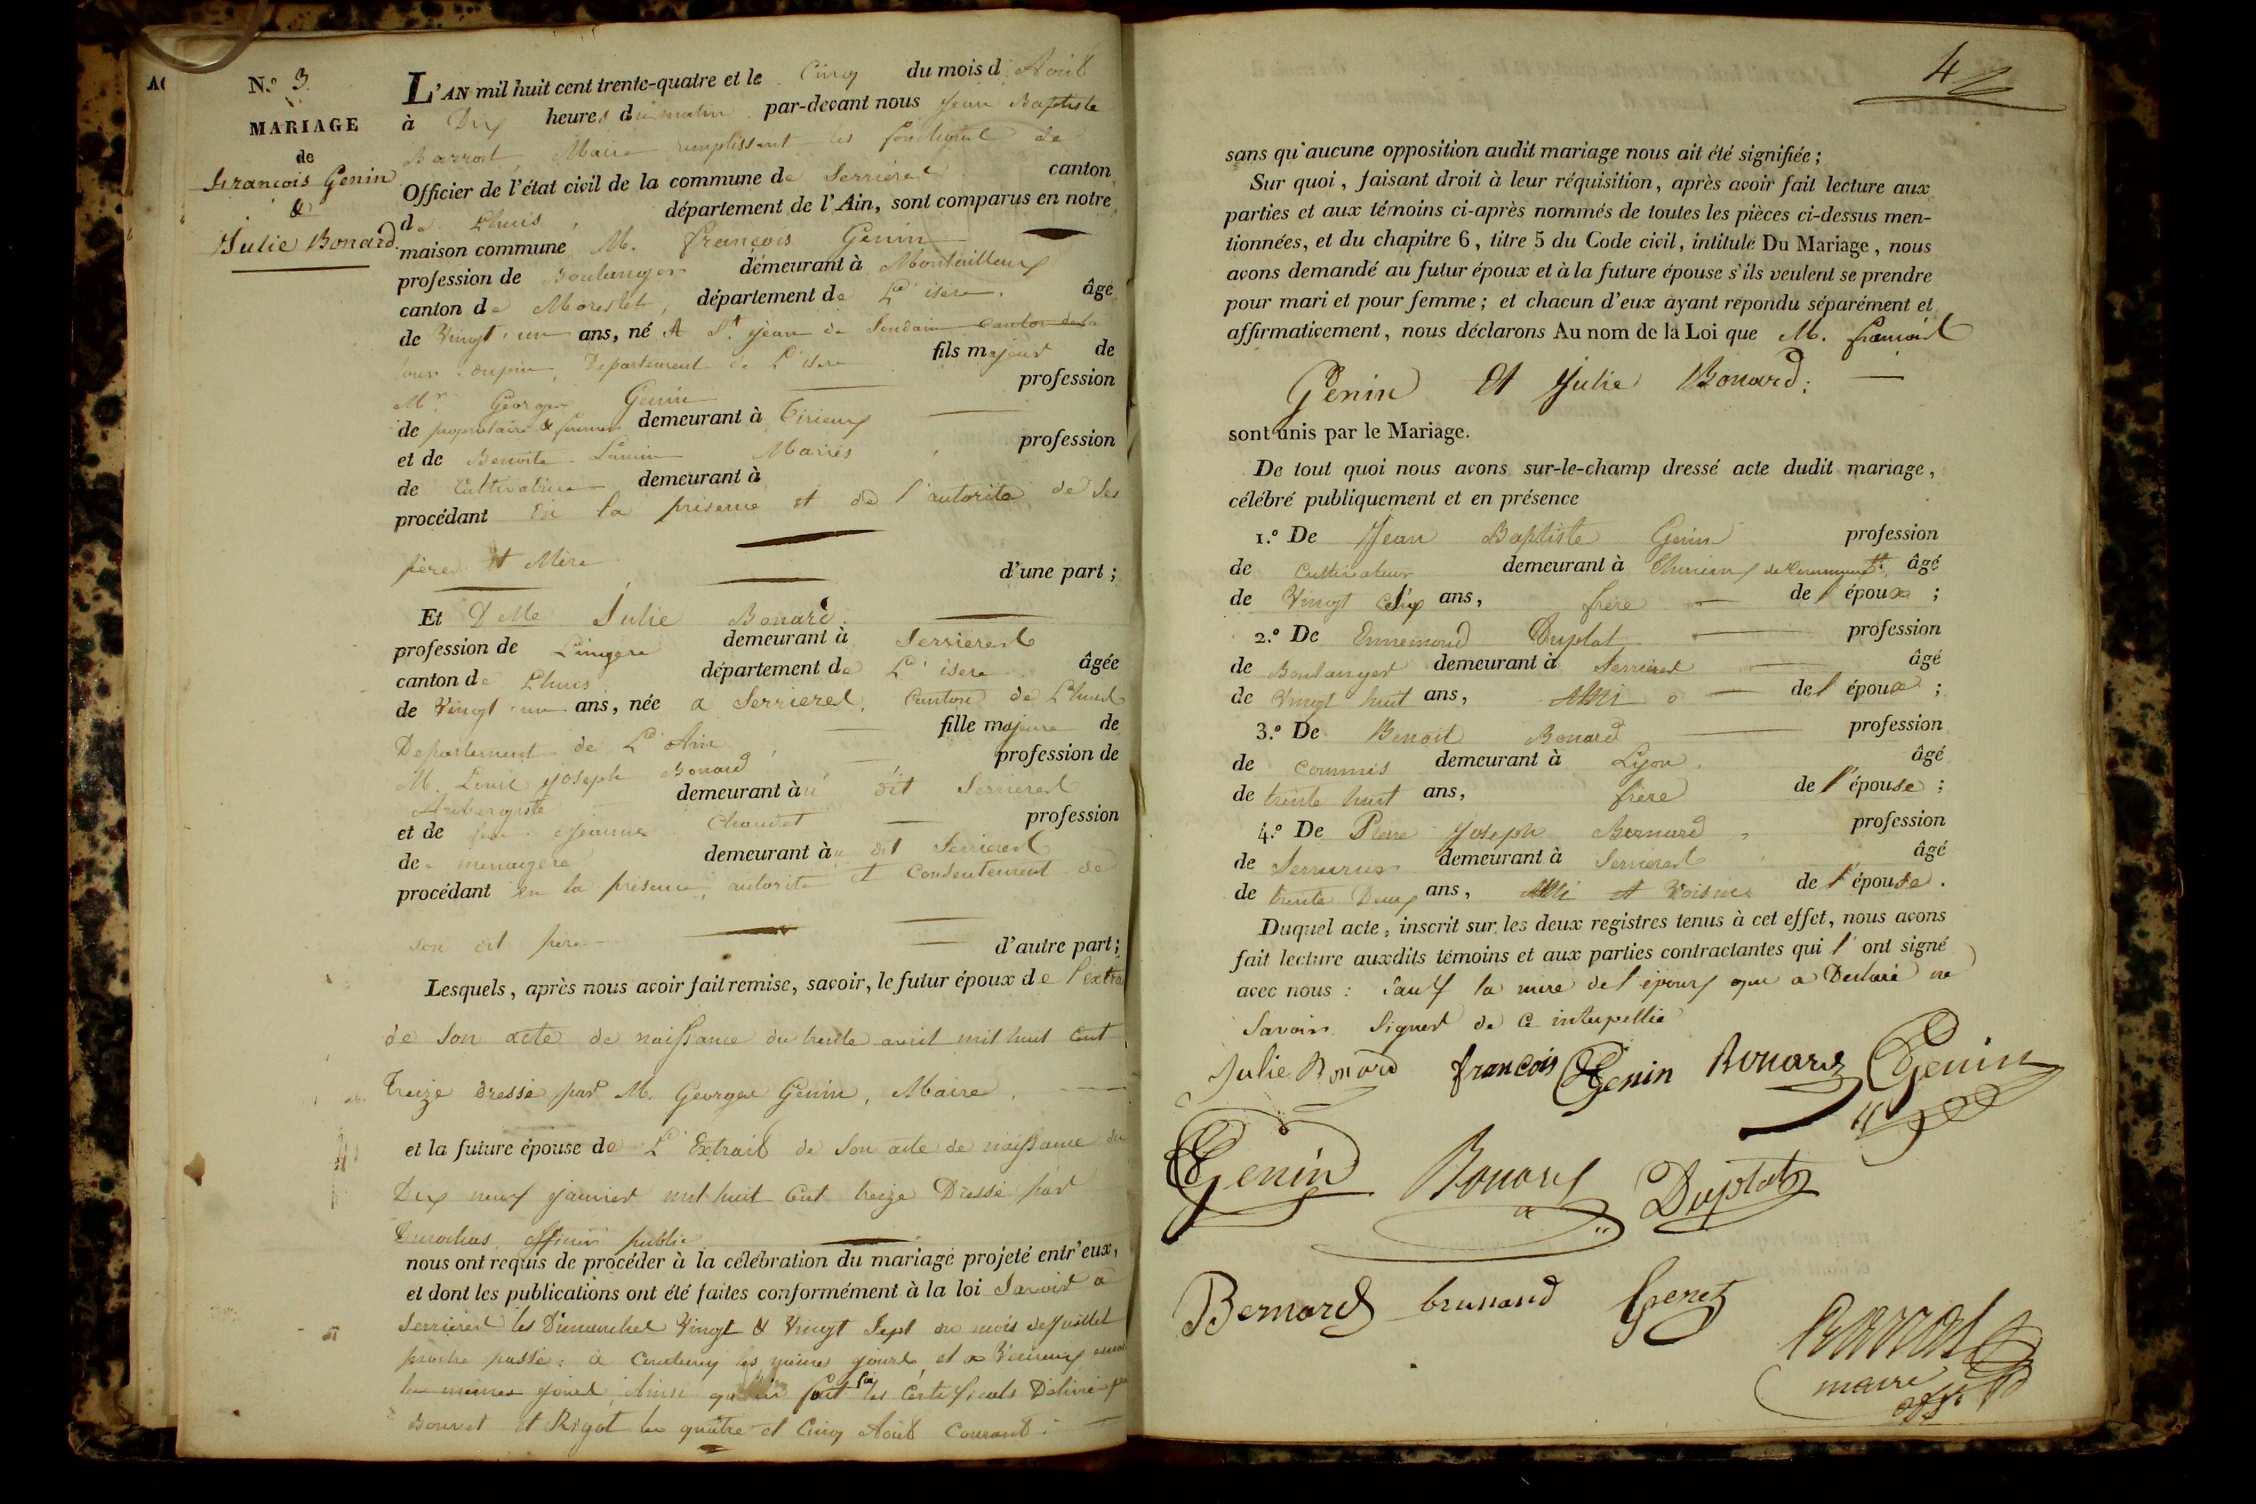 N.o 3
MARIAGE
de
François Genin
&
Julie Bonard.
L'AN mil huit cent trente-quatre et le Cinq du mois d'Août
à Dix heures du matin par-devant nous Jean Baptiste
Barrot, Maire remplissant les fonctions de
Officier de l'état civil de la commune de Serrieres canton
de Lhuis, département de l'Ain, sont comparus en notre
maison commune M. françois Genin
profession de Boulanger demeurant à
canton de Morestel, département de L'isere. âgé
de Vingt-un ans, né à St. Jean de Soudain canton de la
tour dupin, Departement de L'isere fils majeur de
Mr. George Genin profession
de proprietaire & demeurant à Tirieux
et de Benoite Mariés, profession
de Cultivatrice demeurant à
procédant En la presence et de l'autorité de ses
père et Mère d'une part ;
Et Delle Julie Bonard.
profession de Lingere demeurant à Serrieres
canton de Lhuis département de L'isere âgée
de Vingt-un ans, née a Serrieres, Canton de Lhuis
Departement de L'Ain, fille majeure de
M. Louis Joseph Bonard profession de
Aubergiste demeurant à dit Serrieres
et de Jeanne Chaudet profession
de menagere demeurant à dit Serrieres
procédant en la presence, autorité et Consentement de
son dit père d'autre part ;
Lesquels, après nous avoir fait remise, savoir, le futur époux de l'extra
de Son acte de naissance du trente avril mil huit Cent
Treize dressé par M. George Genin, Maire.
et la future épouse de L'Extrait de Son acte de naissance du
Dix neuf janvier mil huit Cent treize Dressé par
officier public
nous ont requis de procéder à la célébration du mariage projeté entr'eux,
et dont les publications ont été faites conformément à la loi Savoir a
Serrieres les Dimanches Vingt & Vingt Sept du mois de Juillet
proche passé: a les mêmes jours et a
les mêmes jours, Ainsi qu'en font foi les Certificats Délivrés
Bouvet et Rigot les quatre et Cinq Août Courant.
4
sans qu'aucune opposition audit mariage nous ait été signifiée ;
Sur quoi, faisant droit à leur réquisition, après avoir fait lecture aux
parties et aux témoins ci-après nommés de toutes les pièces ci-dessus men-
tionnées, et du chapitre 6, titre 5 du Code civil, intitulé Du Mariage, nous
avons demandé au futur époux et à la future épouse s'ils veulent se prendre
pour mari et pour femme ; et chacun d'eux ayant répondu séparément et
affirmativement, nous déclarons Au nom de la Loi que M. françois
Genin Et Julie Bonard:
sont unis par le Mariage.
De tout quoi nous avons sur-le-champ dressé acte dudit mariage,
célébré publiquement et en présence
1.o De Jean Baptiste Genin profession
de Cultivateur demeurant à âgé
de Vingt ans, frère de l'époux ;
2.o De Ennemond Duplat profession
de Boulanger demeurant à Serrieres âgé
de Vingt huit ans, Ami de l'époux ;
3.o De Benoit Bonard profession
de commis demeurant à Lyon. âgé
de trente huit ans, frère de l'épouse ;
4.o De Pierre Joseph Bernard, profession
de Serrurier demeurant à Serrieres âgé
de trente Deux ans, Ami et Voisin de l'épouse.
Duquel acte, inscrit sur les deux registres tenus à cet effet, nous avons
fait lecture auxdits témoins et aux parties contractantes qui l'ont signé
avec nous : Sauf la mere de l'époux qui a Declaré ne
Savoir Signer de ce interpellé
Julie Bonard françois Genin Bonard Genin
Genin Bonard Duplat
Bernard brunand Genet
Barrot
maire